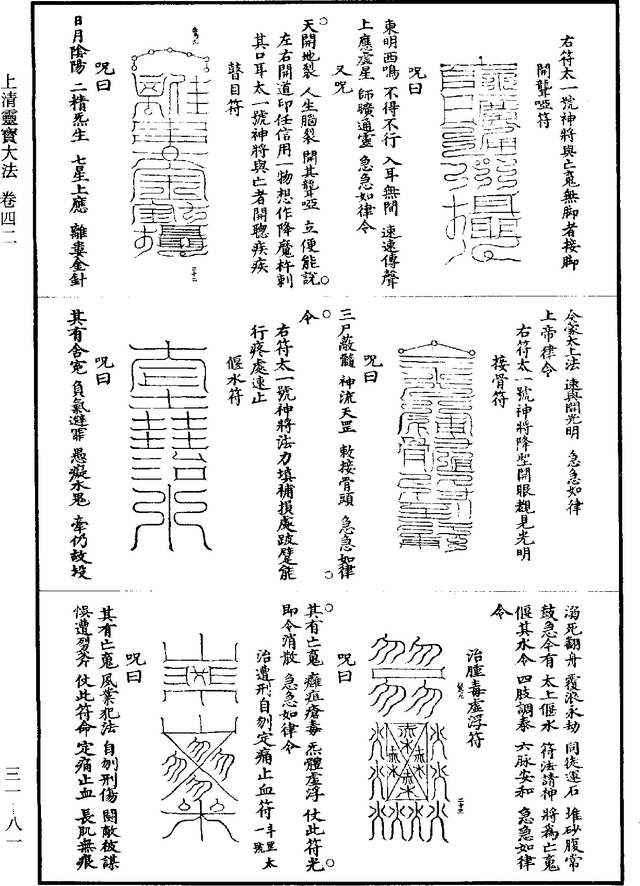 上清靈寶大法 卷四二
三一—八一
右符太一號神將與亡䰟無脚者接脚
開聾啞符
呪曰
東明西鳴 不得不行 入耳無間 速速傳聲
上應虛星 師曠通靈 急急如律令
又呪
天開地裂 人生腦裂 開其聾啞 立便能說
左右開道印任信用一物想作降魔杵刺
其口耳太一號神將與亡者開聰疾疾
瞽目符
呪曰
日月陰陽 二精炁生 七星上應 離婁金針
令蒙太上法 速與開光明 急急如律
上帝律令
右符太一號神將降聖開眼覩見光明
接骨符
呪曰
三尸敲髓 神流天罡 敕接骨頭 急急如律
令
右符太一號神將法力填補損處跛躄能
行疼處速止
偃水符
呪曰
其有含寃 負氣避罪 愚癡水䰟 牽仍故投
溺死翻舟 覆浪永劫 同徒運石 堆砂腹常
鼓急今有 太上偃水 符法請神 將為亡䰟
偃其水令 四肢調泰 六脉安和 急急如律
令
治腫毒虛浮符
呪曰
其有亡䰟 癰疽瘡毒 炁體虛浮 仗此符光
即令消散 急急如律令
治遭刑自刎定痛止血符 斗罡太一號
呪曰
其有亡䰟 風業犯法 自刎刑傷 鬪敵被謀
悞遭 仗此符命 定痛止血 長肌無痕